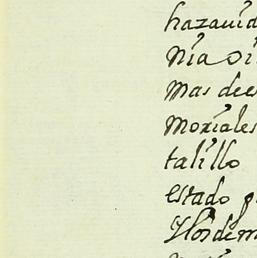 hazauid
nia Di
mas dees
moriales
talillo
estado
Hosdem